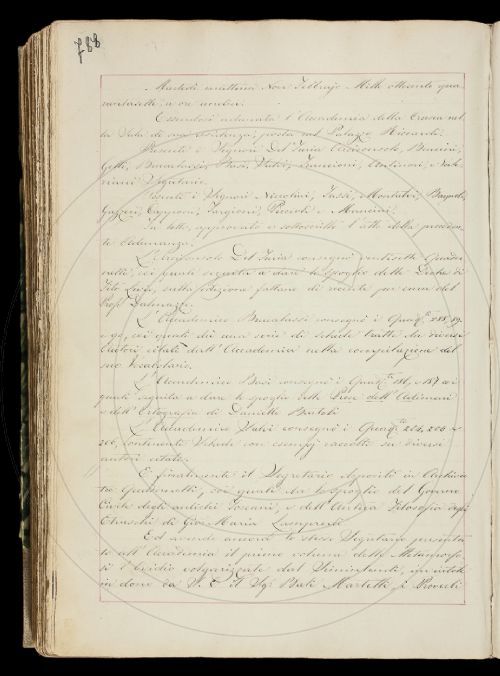 788
Martedì mattina Nove Febbrajo Mille ottocento qua-
rantasette, a ore undici.
Essendosi adunata l'Accademia della Crusca nel-
la Sala di sua residenza, posta nel Palazzo Riccardi.
Presenti i Signori Del Furia Arciconsolo, Bencini,
Gelli, Brucalassi, Basi, Valeri, Francioni, e Vale-
riani Segretario.
Assenti i Signori Niccolini, Tassi, Montalvi, Bagnoli,
Gazzeri, Capponi, Targioni, Puccioli e Mancini.
Fu letto, approvato e sottoscritto l'atto della preceden-
te Adunanza.
L'Arciconsolo Del Furia consegnò ventisette Quader-
notti, coi quali seguita a dare lo spoglio delle Deche di
Tito Livio, sulla edizione fattane di recente per cura del
Prof. Dalmazzo.
L'Accademico Brucalassi consegnò i Quad. 288, 89,
e 90, coi quali dà una serie di schede tratte da diversi
Autori citati dall'Accademia nella compilazione del
suo Vocabolario.
L'Accademico Basi consegnò i Quad. 186, e 187 coi
quali seguita a dare lo spoglio delle Prose dell'
e dell'Ortografia di Daniello Bartoli
L'Accademico Valeri consegnò i Quad. 204, 205 e
206, contenenti Schede con esempj raccolti su diversi
autori citati.
E finalmente il Segretario depositò in Archivio
tre Quadernotti, coi quali dà lo spoglio del Governo
Civile degli antichi Toscani, e dell'Antica Filosofia degli
Etruschi di Gio: Maria Lampredi.
Ed avendo ancora lo stesso Segretario presenta-
to all'Accademia il primo volume delle Metamorfo-
si d'Ovidio volgarizzate dal Simintendi, inviatole
in dono da S. E. il Sig. Balì Martelli, i Proverbi